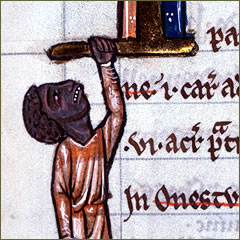 pa
ne · i · car̃ a
· vi · acr̃ p̃ti
In Onestu